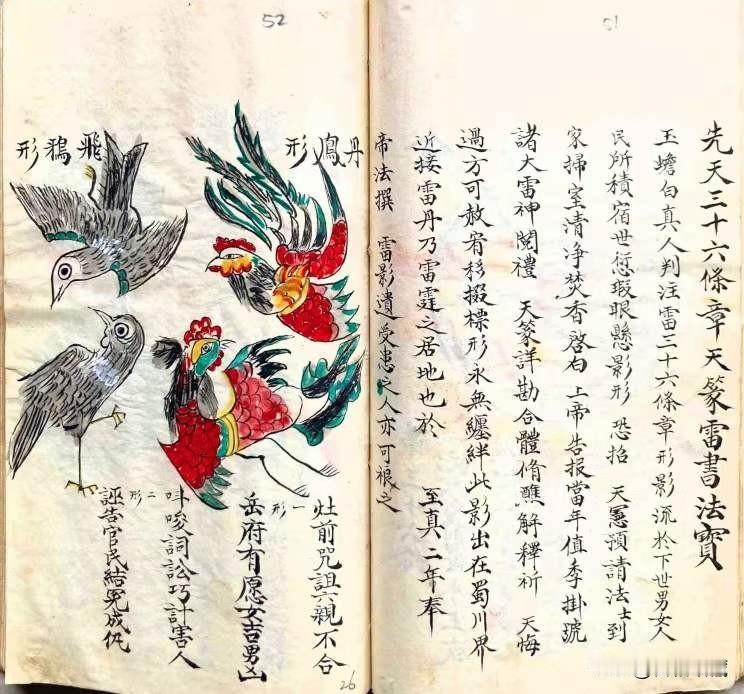 51
先天三十六條章天篆雷書法寶
玉蟾白真人判注雷三十六條章形影流於下世男女人
民所積宿世愆瑕眼懸影形 恐招 天憲預請法士到
家掃室清淨焚香啓白 上帝告报當年值季掛號
諸大雷神閱禮 天篆詳勘合體脩醮解釋祈 天悔
過方可赦宥移掇標形永無纏絆此影出在蜀川界
近接雷丹乃雷霆之居地也於 至真二年奉
帝法撰 雷影遺受患之人亦可禳之
52
丹鳳形
飛鴉形
灶前咒詛六親不合
一形
岳府有愿女吉男凶
唆詞訟巧計害人
二形
誣告官民結冤成仇
26